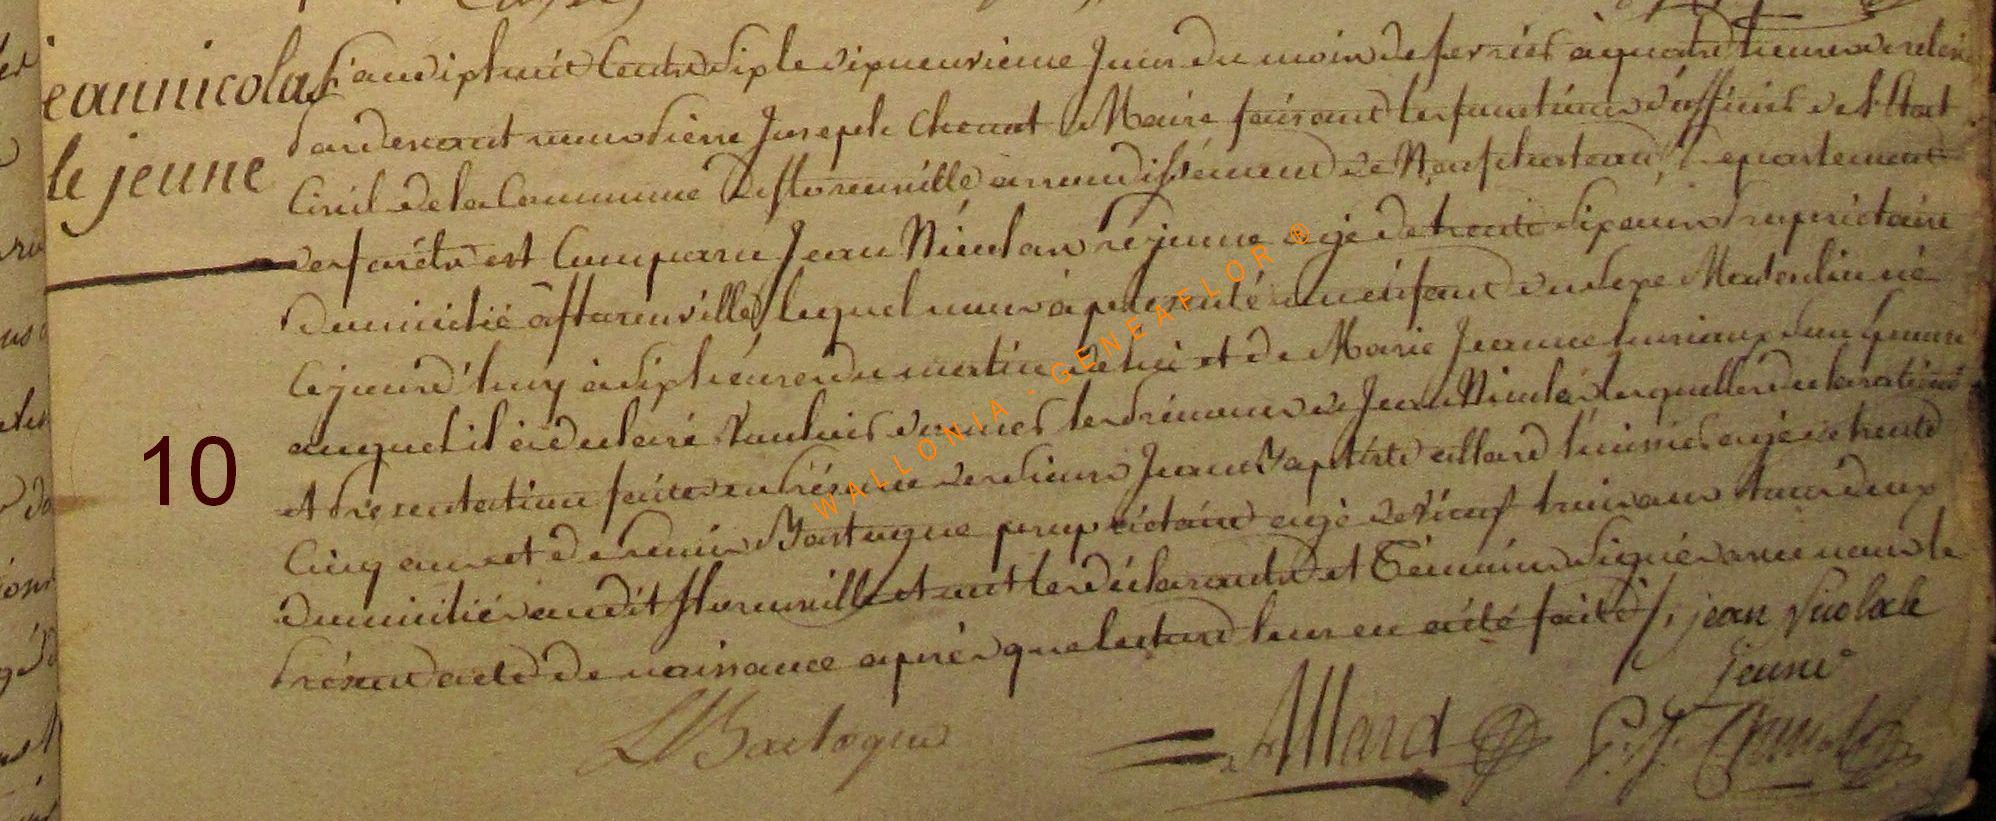 jeannicolas
le jeune
L'an dix huit cent dix le dixneuvieme Jour du mois de fevrier à quatre heures de relevé
Pardevant nous Pierre Joseph Chenot Maire faisant les fonctions d'officier de l'Etat
Civil de la Commune de florenville arrondissement de Neufchateau, Departement
des forêts est Comparu Jean Nicolas lejeune agé de trente six ans proprietaire
domicilié à florenville, lequel nous à presenté un enfant du sexe Masculin né
Cejourd'huy à sept heures du matin de lui et de Marie Jeanne
auquel il à declaré vouloir donner les prénoms de Jean Nicolas, lesquelles declaration
et Presentation faites en Présence de sieurs Jean Baptiste allard huissier agé de trente
Cinq ans et de Bastogne proprietaire agé de vingt trois ans tous deux
domiciliés audit florenville et ont les déclarants et Témoins Signés avec nous le
Présent acte de naissance après que lecture leur en a été faite /. jean Nicola le
jeune
10
Bastogne
Allard
P. J. Chenot
WALLONIA - GENEAFLOR ®